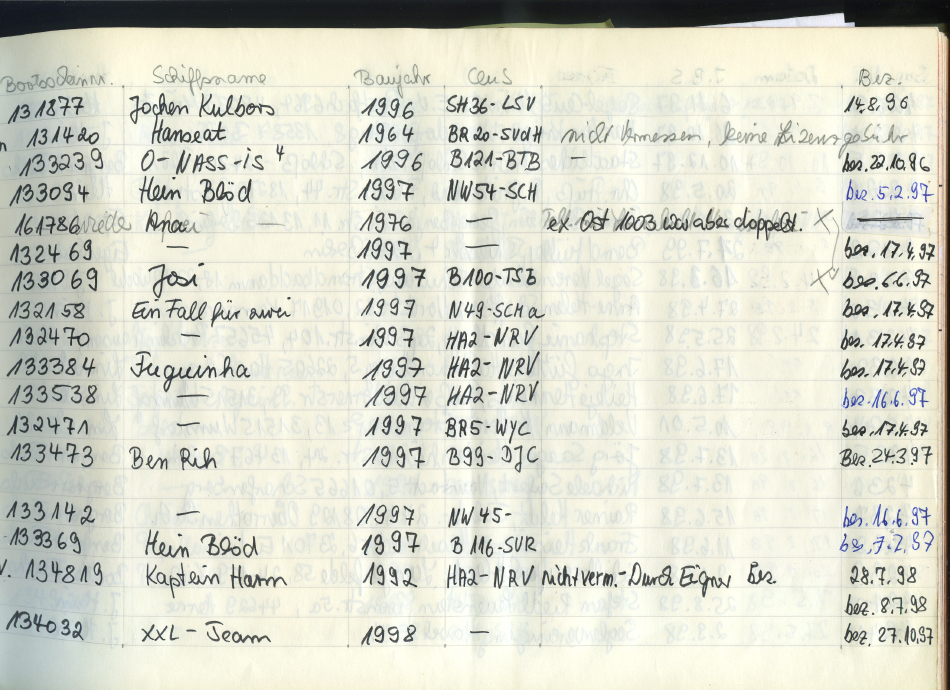 Schiffsname Baujahr Club Bez.
131877 Jochen Kulbors 1996 SH36-LSV 14.8.96
131420 Hanseat 1964 BR20-SVdH nicht vermessen, keine Lizenzgebühr
133239 O-NASS-is 4 1996 B121-BTB — bez. 22.10.96
133094 Hein Blöd 1997 NW54-SCH bez. 5.2.97
161786 1976 — doppelt. X
132469 — 1997 — bez. 17.4.97
133069 Josi 1997 B100-TSB X bez. 6.6.97
132158 Ein Fall für zwei 1997 N49-SCHa bez. 17.4.97
132470 1997 HA2-NRV bez. 17.4.97
133384 Fuguinha 1997 HA2-NRV bez. 17.4.97
133538 — 1997 HA2-NRV bez. 16.6.97
132471 — 1997 BR5-WYC bez. 17.4.97
133473 Ben Rih 1997 B99-DJC Bez. 24.3.97
133142 — 1997 NW45- bez. 16.6.97
133369 Hein Blöd 1997 B116-SVR bez. 7.7.97
134819 Kaptein Hann 1992 HA2-NRV nicht verm.-Durch Eigner Bez. 28.7.98
bez. 8.7.98
134032 XXL-Team 1998 — bez. 27.10.97